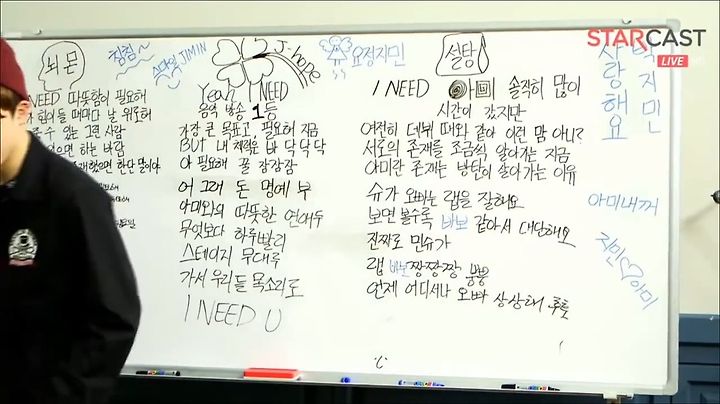 STARCAST
LIVE
뇌몬
침침~
슈가와 JIMIN
J-hope
요정지민
설탕
박지민
사랑해요
I NEED 따뜻함이 필요해
내가 힘이들 때마다 날 위로해
줄 수 있는 그런 사람
있으면 하는 바람
Yeah I NEED
음악 방송 1등
가장 큰 목표고, 필요해 지금
BUT 내 체력은 바닥 닥 닥
아 필요해 꿀 잠잠잠
어 그래 돈 명예 부
아미와의 따뜻한 연애두
무엇보다 하루빨리
스테이지 무대루
가서 우리들 목소리로
I NEED U
I NEED 솔직히 많이
시간이 갔지만
여전히 데뷔 때와 같아 이런 맘 아니?
서로의 존재를 조금씩 알아가는 지금
아미란 존재는 방탄이 살아가는 이유
슈가 오빠는 랩을 잘해요
보면 볼수록 바보 같아서 대답해요
진짜로 민슈가
랩 바보 짱짱짱 뿡뿡
언제 어디서나 오빠 상상해 후훗
아미내꺼
지민♡아미